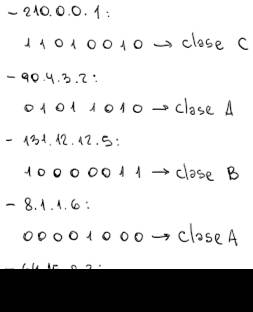 - 210.0.0.1:
1 1 0 1 0 0 1 0 → clase C
- 90.4.3.2:
0 1 0 1 1 0 1 0 → clase A
- 131.12.12.5:
1 0 0 0 0 0 1 1 → clase B
- 8.1.1.6:
0 0 0 0 1 0 0 0 → clase A